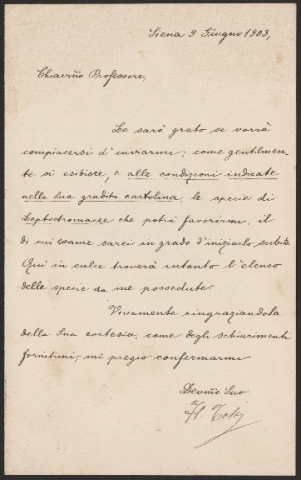 Siena 9 Giugno 1903,
Chiarmo Professore,
Le sarò grato se vorrà
compiacersi d'inviarmi, come gentilmen-
te si esibisce, e alle condizioni indicate
nella Sua gradita cartolina, le specie di
Leptostromaceae che potrà favorirmi, il
di cui esame sarei in grado d'iniziarlo subito.
Qui in calce troverà intanto l'elenco
delle specie da me possedute.
Vivamente ringraziandola
della Sua cortesia, come degli schiarimenti
fornitimi, mi pregio confermarmi
Devmo Suo